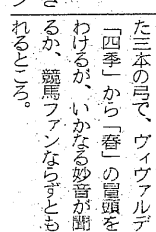 た三本の弓で、ヴィヴァルデ
「四季」から「春」の冒頭を
わけるが、いかなる妙音が聞
るか、競馬ファンならずとも
れるところ。